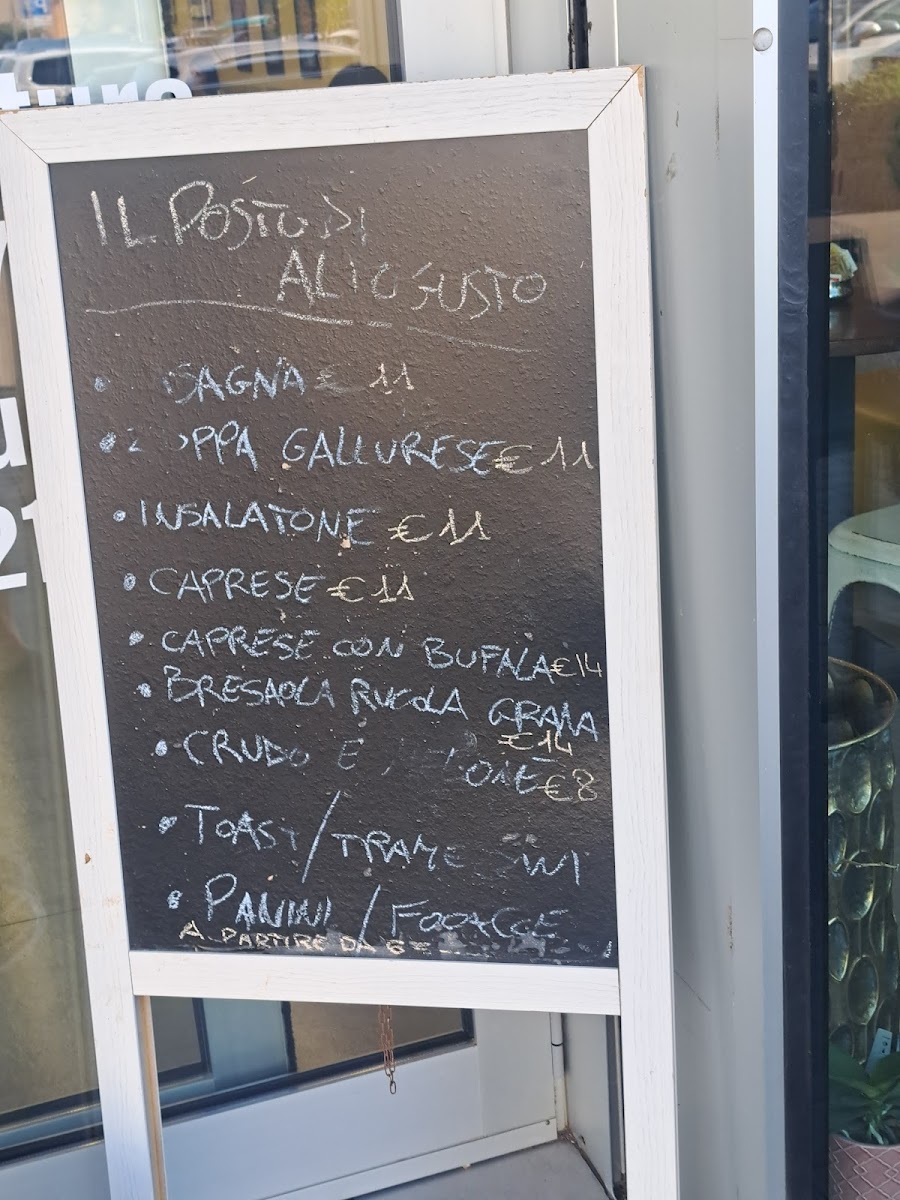 IL POSTO DI
GUSTO
€ 11
GALLURESE €11
INSALATONE €11
CAPRESE €11
CAPRESE CON BUFALA €14
BRESAOLA RUCOLA GRANA
€14
CRUDO E €8
TOAST/TRAMEZZINI
PANINI / FOCACCE
A PARTIRE DA 6€